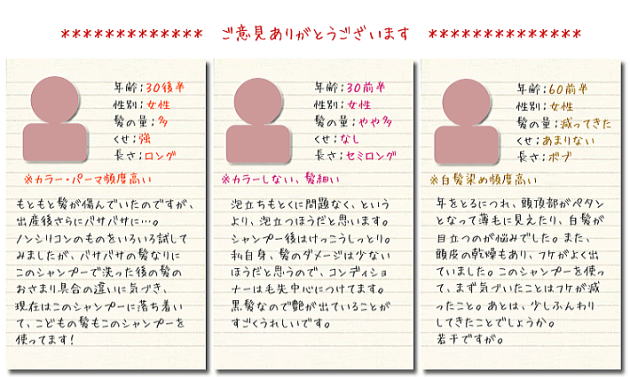 ************* ご意見ありがとうございます **************
年齢：30後半
性別：女性
髪の量：多
くせ：強
長さ：ロング
※カラー・パーマ頻度高い
もともと髪が傷んでいたのですが、
出産後さらにバサバサに…。
ノンシリコンのものをいろいろ試して
みましたが、バサバサの髪なりに
このシャンプーで洗った後の髪の
おさまり具合の違いに気づき、
現在はこのシャンプーに落ち着い
て、こどもの髪もこのシャンプーを
使ってます!
年齢：30前半
性別：女性
髪の量：やや多
くせ：なし
長さ：セミロング
※カラーしない、髪細い
泡立ちもとくに問題なく、という
より、泡立つほうだと思います。
シャンプー後はけっこうしっとり。
私自身、髪のダメージは少ない
ほうだと思うので、コンディショ
ナーは毛先中心につけてます。
黒髪なので艶が出ていることが
すごくうれしいです。
年齢：60前半
性別：女性
髪の量：減ってきた
くせ：あまりない
長さ：ボブ
※白髪染め頻度高い
年をとるにつれ、頭頂部がペタン
となって薄毛に見えたり、白髪が
目立つのが悩みでした。また、
頭皮の乾燥もあり、フケがよく出
ていました。このシャンプーを使っ
て、まず気づいたことはフケが減
ったこと。あとは、少しふんわり
してきたことでしょうか。
若干ですが。